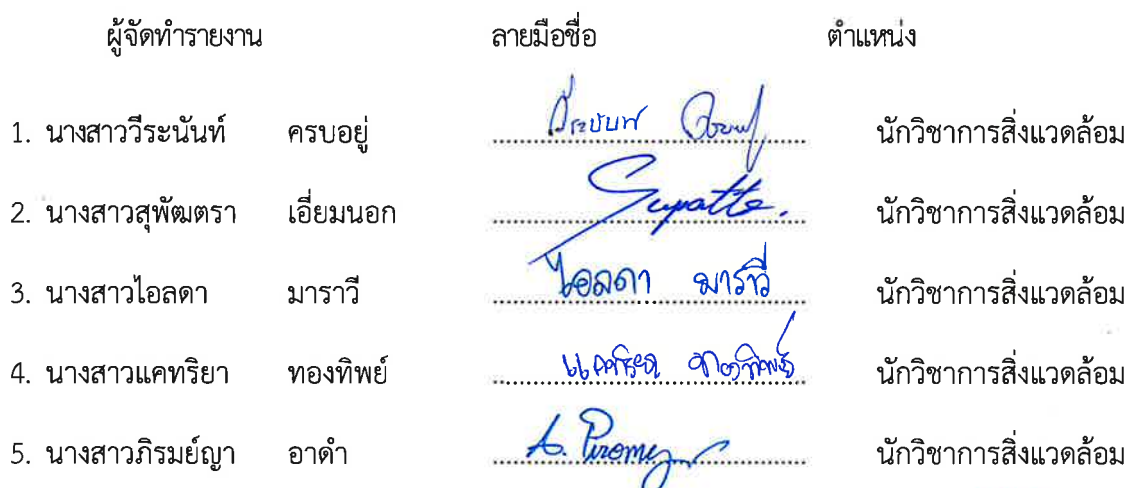 ผู้จัดทำรายงาน ลายมือชื่อ ตำแหน่ง
1. นางสาววีระนันท์ ครบอยู่ วีระนันท์ นักวิชาการสิ่งแวดล้อม
2. นางสาวสุพัฒตรา เอี่ยมนอก Supatta. นักวิชาการสิ่งแวดล้อม
3. นางสาวไอลดา มาราวี ไอลดา มาราวี นักวิชาการสิ่งแวดล้อม
4. นางสาวแคทริยา ทองทิพย์ แคทริยา ทองทิพย์ นักวิชาการสิ่งแวดล้อม
5. นางสาวภิรมย์ญา อาดำ A. นักวิชาการสิ่งแวดล้อม